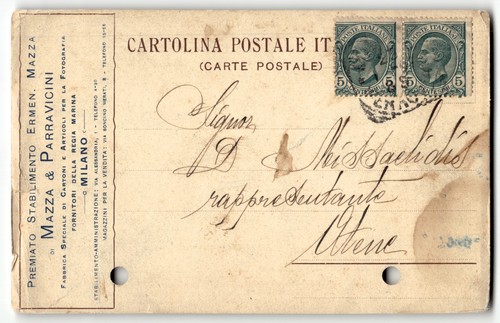 PREMIATO STABILIMENTO ERMEN. MAZZA
DI
MAZZA & PARRAVICINI
FABBRICA SPECIALE DI CARTONI E ARTICOLI PER LA FOTOGRAFIA
FORNITORI DELLA REGIA MARINA
MILANO
STABILIMENTO-AMMINISTRAZIONE: VIA ALESSANDRIA, - TELEFONO
MAGAZZINI PER LA VENDITA: VIA - TELEFONO
CARTOLINA POSTALE ITA
(CARTE POSTALE)
POSTE ITALIANE
5 5
POSTE ITALIANE
5 5
Signor
D Meissaelidis
rappresentante
Atene